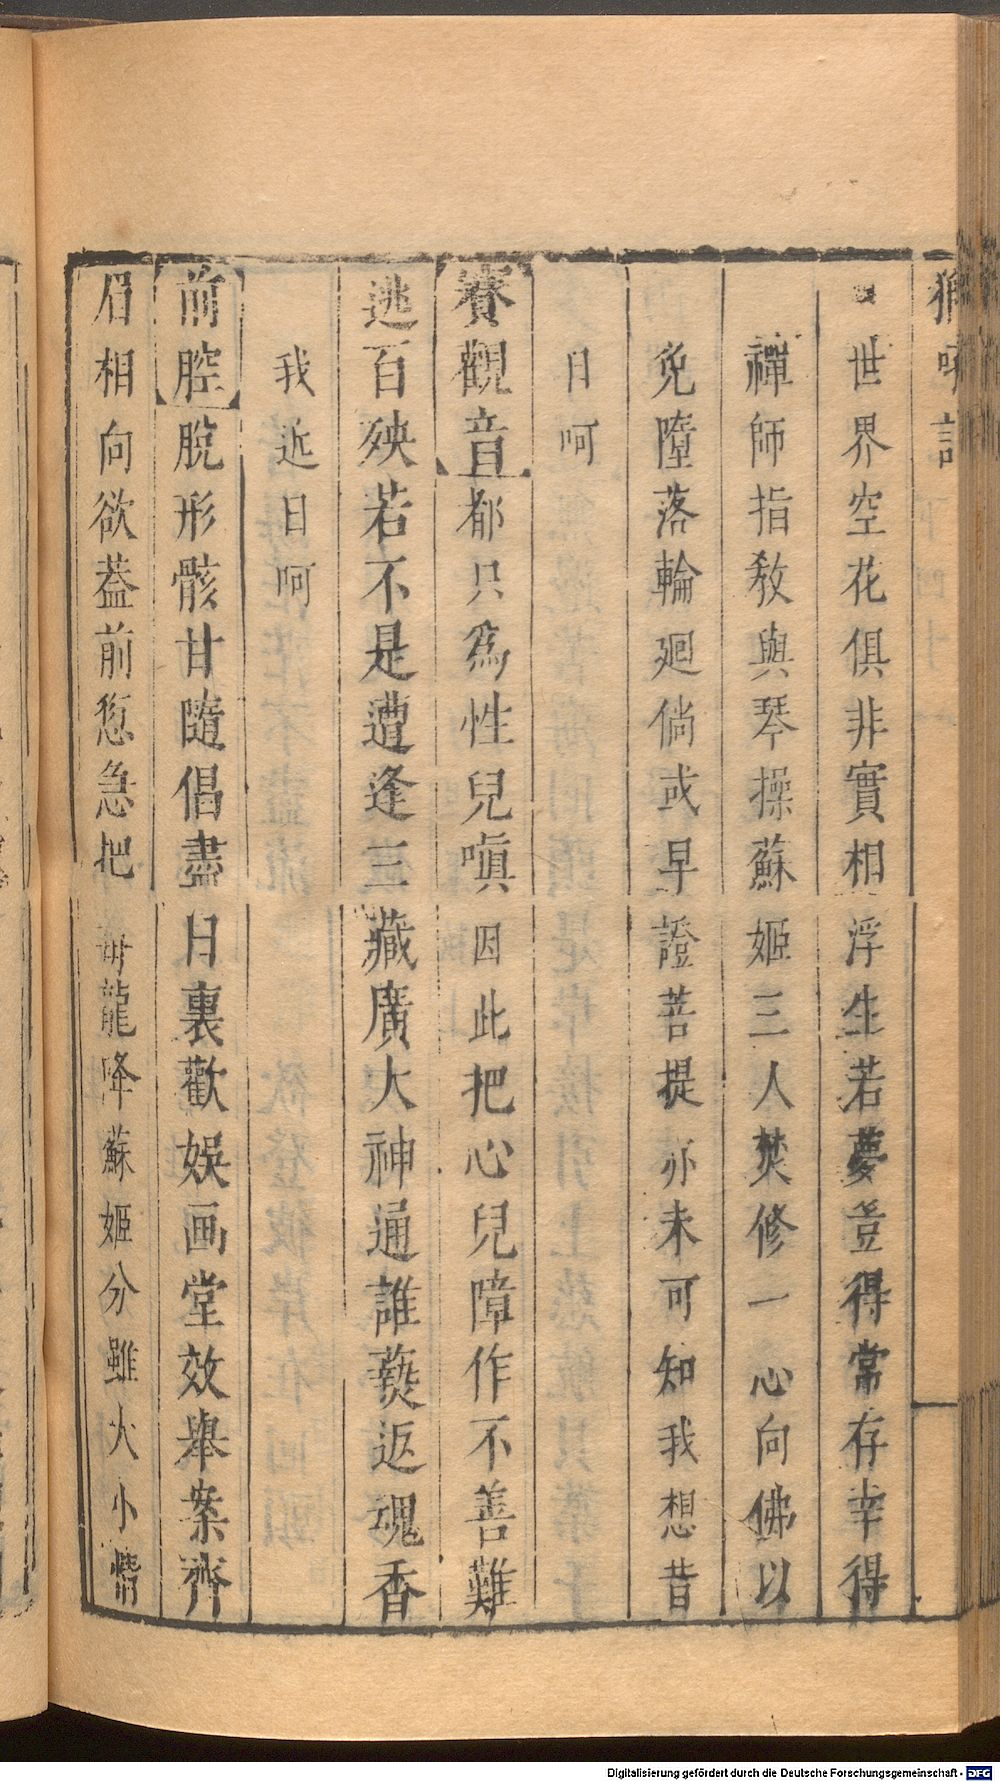 獅吼記
世界空花俱非實相浮生若夢豈得常存幸得
禪師指教與琴操蘇姬三人焚修一心向佛以
免墮落輪廻倘或早證菩提亦未可知我想昔
日呵
賽觀音都只為性兒嗔因此把心兒障作不善難
逃百殃若不是遭逢三藏廣大神通誰爇返魂香
我近日呵
前腔脫形骸甘隨倡盡日裏歡娛画堂效舉案齊
眉相向欲葢前愆急把毒龍降蘇姬分雖大小情
Digitalisierung gefördert durch die Deutsche Forschungsgemeinschaft - DFG